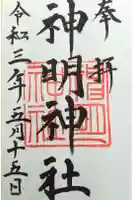 奉拝
神明神社
令和三年五月十五日